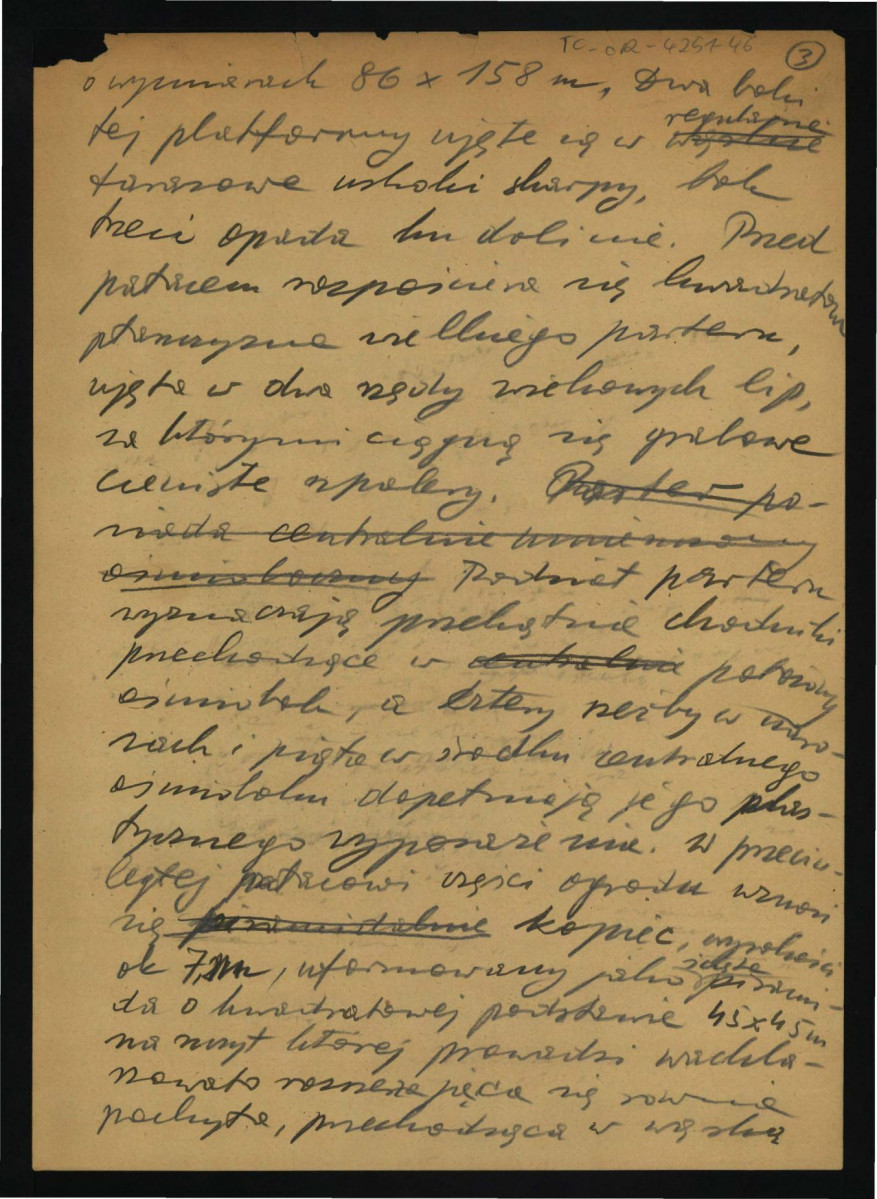 TC-CR-4251-46 3
o wymiarach 86 x 158 m, Dwa boki
regularnie
tej platformy ujęte są w wąskie
tarasowe uskoki skarpy, bok
trzeci opada ku dolinie. Przed
pałacem rozpościera się kwadratowa
płaszczyzna wielkiego parteru,
ujęta w dwa rzędy wiekowych lip,
za którymi ciągną się grabowe
cieniste szpalery. Parter po-
siada centralnie umieszczony
ośmioboczny Podział parteru
wyznaczają przekątnie chodniki
przechodzące w centralnie położony
ośmiobok, a cztery rzeźby w naro-
żach i piąta w środku centralnego
ośmioboku dopełniają jego plas-
tycznego wyposażenia. W przeciw-
ległej pałacowi części ogrodu wznosi
się piramidalnie kopiec, wysokości
ok 7,5m, uformowany jako ścięta pirami-
da o kwadratowej podstawie 45x45m
na szczyt której prowadzi wachla-
rzowato rozszerzająca się równia
pochyła, przechodząca w wąską